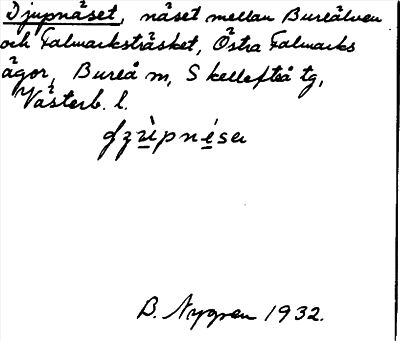 Djupnäset, näset mellan Bureälven
och Falmarksträsket, Östra Falmarks
ägor, Bureå m, Skellefteå tg,
Västerb. l.
B. Nygren 1932.